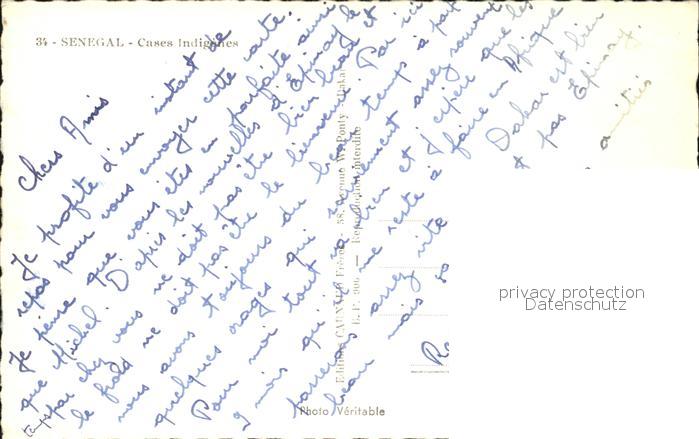 34 - SENEGAL - Cases Indigènes
Chers Amis
Je profite d'un instant de
repos pour vous envoyer cette carte.
Je pense que vous êtes en parfaite ainsi
que Michel. D'après les nouvelles d'Epinay le
temps par chez vous ne doit pas être bien beau et
le froid ne doit pas être le bienvenu. Par ici
nous avons toujours du beau temps à part
quelques orages qui surviennent assez souvent
Pour moi tout va bien et j'espère que les
2 mois qui me reste à faire en Afrique
passeront assez vite Dakar est bien
beau mais so + pas Epinay.
amitiés
Ro
Editions CARNAUD Frères - 58, Avenue W. Ponty - Dakar
Reproduction interdite
Photo Véritable
privacy protection
Datenschutz